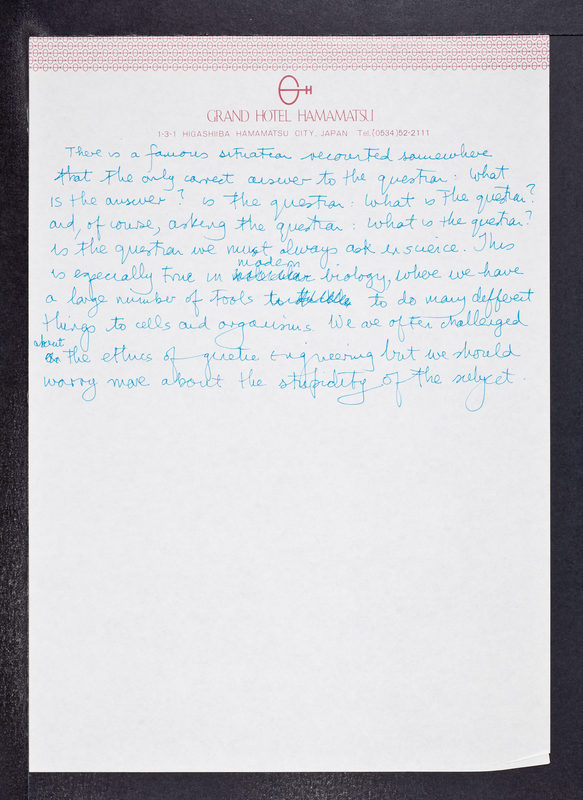 GH
GRAND HOTEL HAMAMATSU
1-3-1 HIGASHIIBA HAMAMATSU CITY, JAPAN Tel.(0534)52-2111
There is a famous situation recounted somewhere
that the only correct answer to the question: What
is the answer? is the question: What is the question?
and, of course, asking the question: What is the question?
is the question we must always ask in science. This
modern
is especially true in molecular biology, where we have
a large number of tools to do many different
things to cells and organisms. We are often challenged
about
on the ethics of genetic engineering but we should
worry more about the stupidity of the subject.